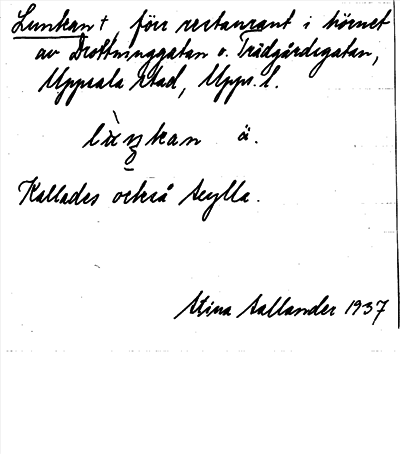 Lunkan †, förr restaurant i hörnet
av Drottninggatan o. Trädgårdsgatan,
Uppsala stad, Upps. l.
kan ä.
Kallades också Scylla.
Stina Sallander 1937